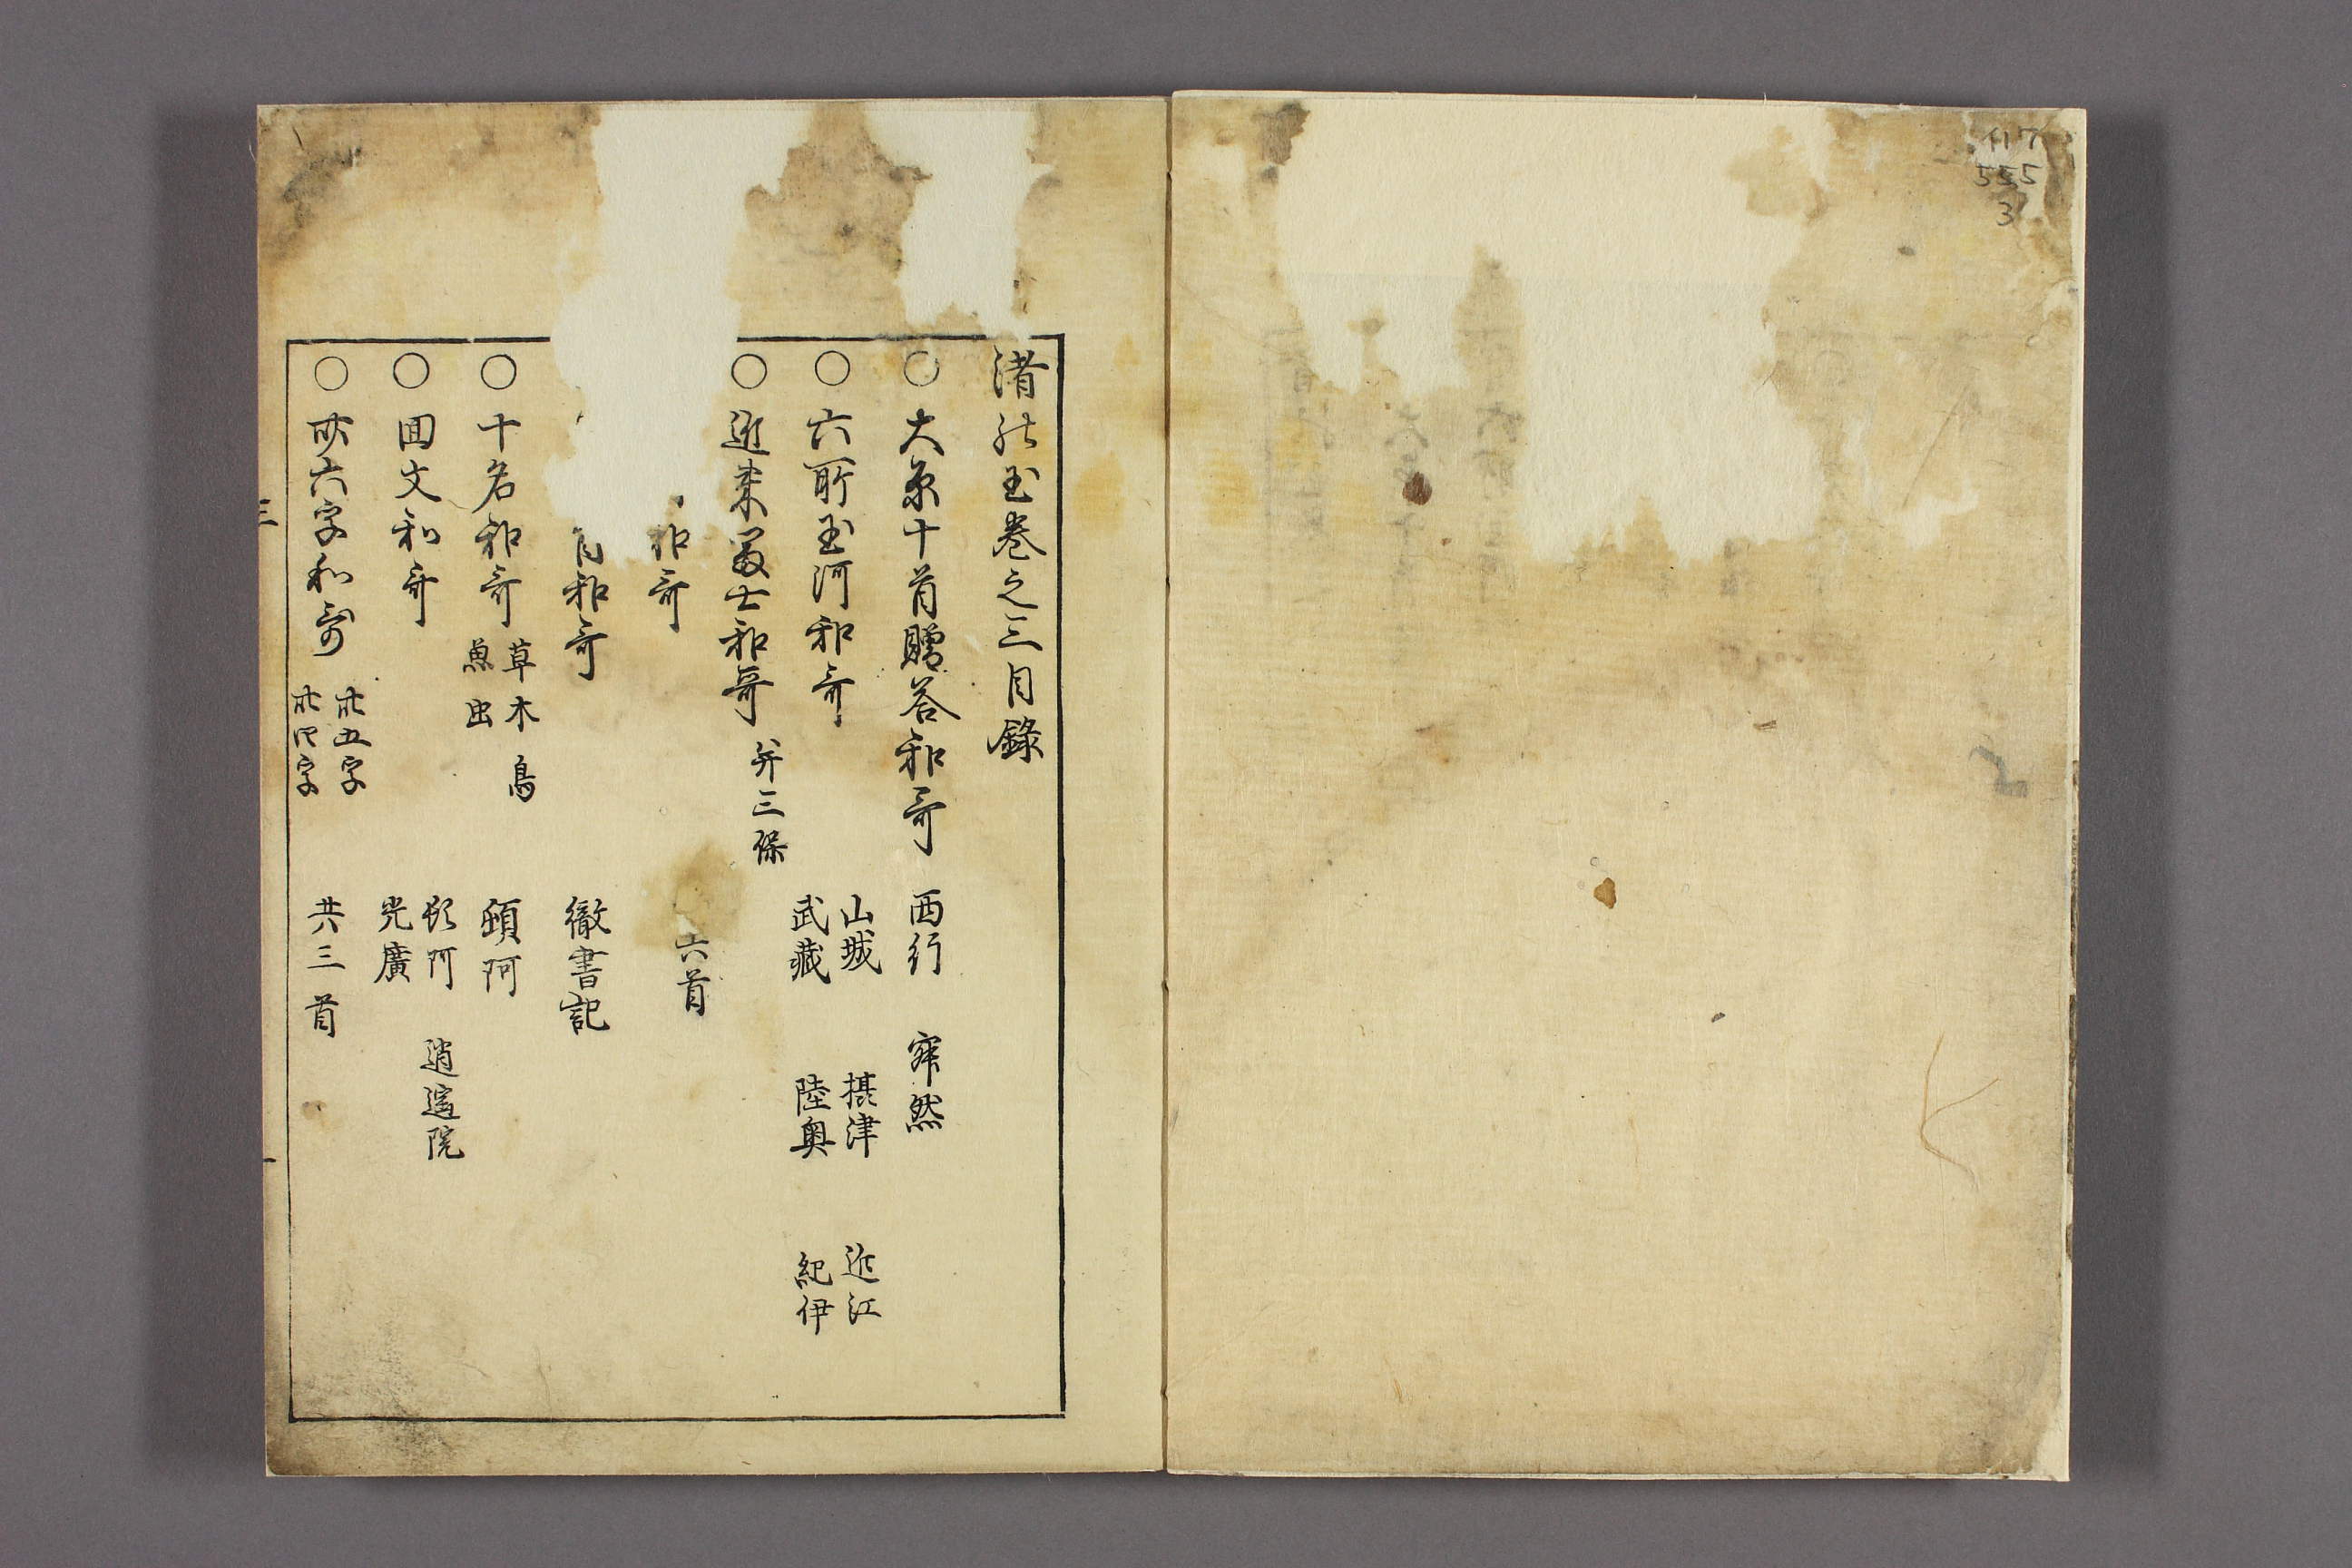 555
3
渚能玉巻之三目録
○大原十首贈答和哥 西行 寂然
○六所玉河和哥 山城 摂津 近江
武藏 陸奥 紀伊
○近来冨士和哥 并三保
和哥 六首
首和哥 徹書記
○十名和哥 草木鳥 頓阿
魚虫
○回文和哥 頓阿 逍遥院
光廣
○卅六字和哥 卅五字 共三首
卅四字
三
一